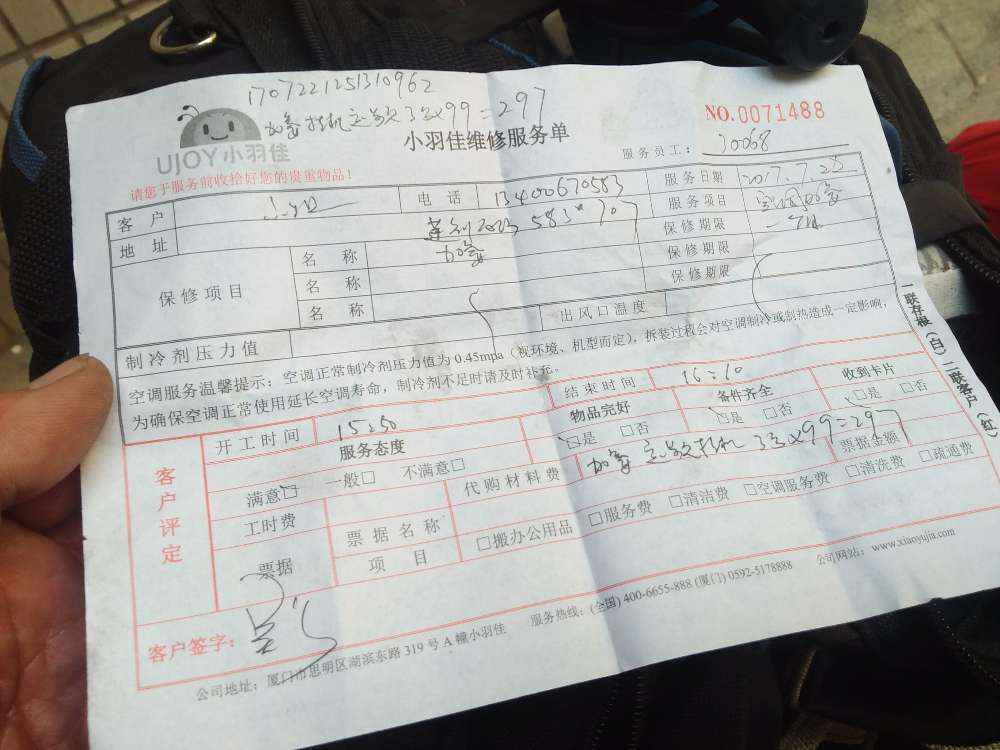 1707221251310962
加氟挂机定频3次x99=297
UJOY小羽佳
小羽佳维修服务单
NO.0071488
请您于服务前收拾好您的贵重物品!
服务员工: 30068
客 户 电 话 13400670583 服务日期 2017.7.22
地 址 583*70 服务项目 空调加氟
保修项目 名 称 加氟 保修期限
名 称 保修期限
名 称 保修期限
制冷剂压力值 出风口温度
空调服务温馨提示: 空调正常制冷剂压力值为 0.45mpa(视环境、机型而定), 拆装过程会对空调制冷或制热造成一定影响,
为确保空调正常使用延长空调寿命, 制冷剂不足时请及时补充。
一联存根(白) 二联客户(红)
客户评定
开工时间 15:50 结束时间 16:10
服务态度 物品完好 备件齐全 收到卡片
满意□ 一般□ 不满意□ □是 □否 □是 □否 □是 □否
工时费 代购材料费 加氟定频挂机3次x99=297
票据 票据名称 票据金额
项 目 □搬办公用品 □服务费 □清洁费 □空调服务费 □清洗费 □疏通费
客户签字:
公司地址: 厦门市思明区湖滨东路 319 号 A 幢小羽佳 服务热线: (全国) 400-6655-888 (厦门) 0592-5178888 公司网站: www.xiaoyujia.com